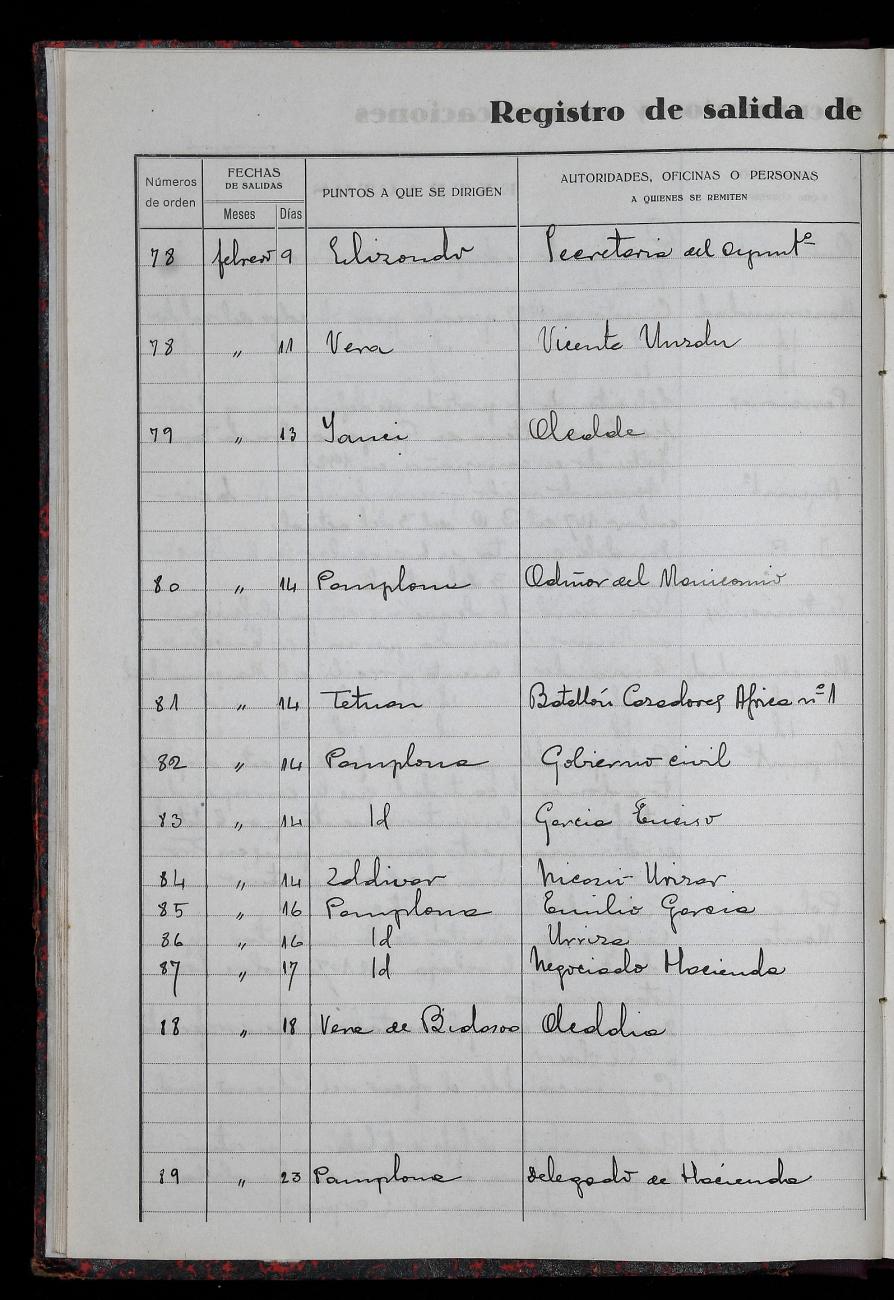 Registro de salida de
Números de orden
FECHAS DE SALIDAS
Meses Días
PUNTOS A QUE SE DIRIGEN
AUTORIDADES, OFICINAS O PERSONAS A QUIENES SE REMITEN
78 febrero 9 Elizondo Secretaria del Ayuntº
78 " 11 Vera Vicente Unsdu
79 " 13 Yanci Alcalde
80 " 14 Pamplona Admor del Manicomio
81 " 14 Tetuan Batallón Cazadores Africa nº 1
82 " 14 Pamplona Gobierno civil
83 " 14 Id Garcia Enciso
84 " 14 Zaldivar Urizar
85 " 16 Pamplona Emilio Garcia
86 " 16 Id Urriza
87 " 17 Id Negociado Hacienda
88 " 18 Vera de Bidasoa Alcaldia
89 " 23 Pamplona Delegado de Hacienda